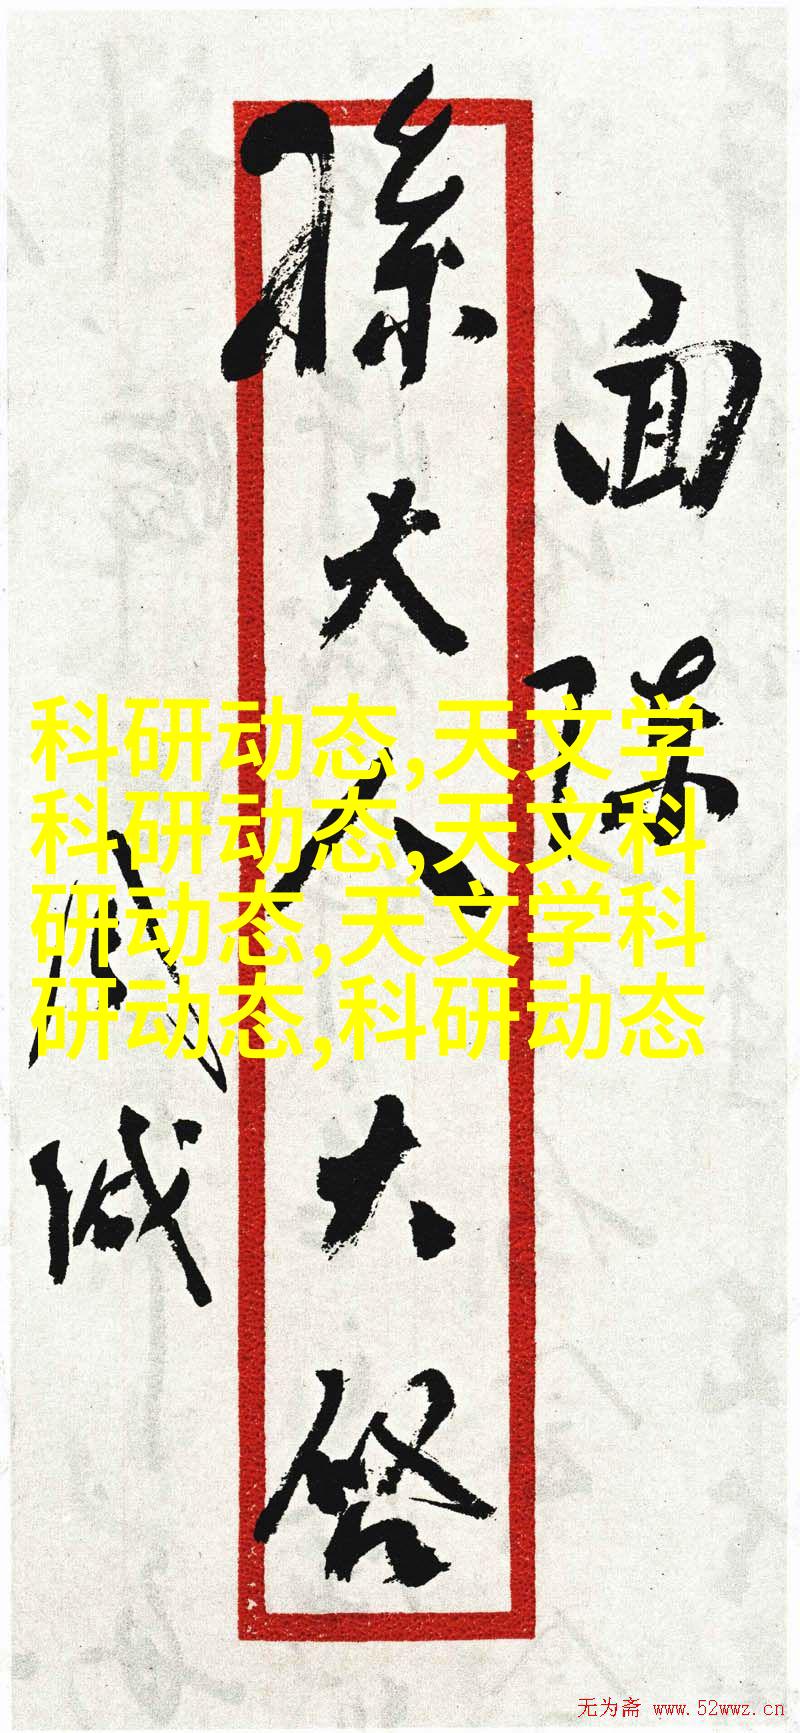 面陳
孫大人大啓
科研动态,天文学
科研动态,天文科
研动态,天文学科
研动态,科研动态
无为斋 www.52wwz.cn